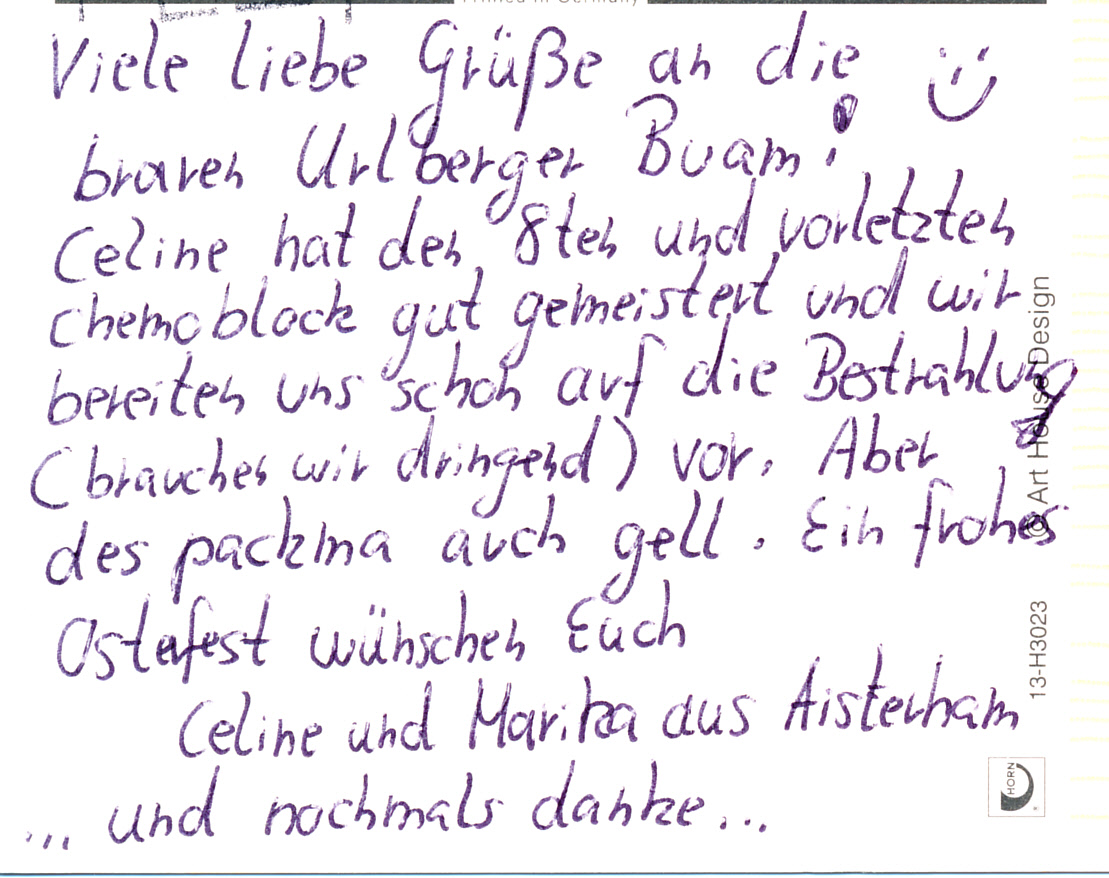 Printed in Germany
Viele liebe Grüße an die
braven Urlberger Buam!
Celine hat den 8ten und vorletzten
chemoblock gut gemeistert und wir
bereiten uns schon auf die Bestrahlung
(brauchen wir dringend) vor. Aber
des packma auch gell. Ein frohes
Osterfest wünschen Euch
Celine und Marika aus Aisterham
... und nochmals danke...
© Art House Design
13-H3023
HORN